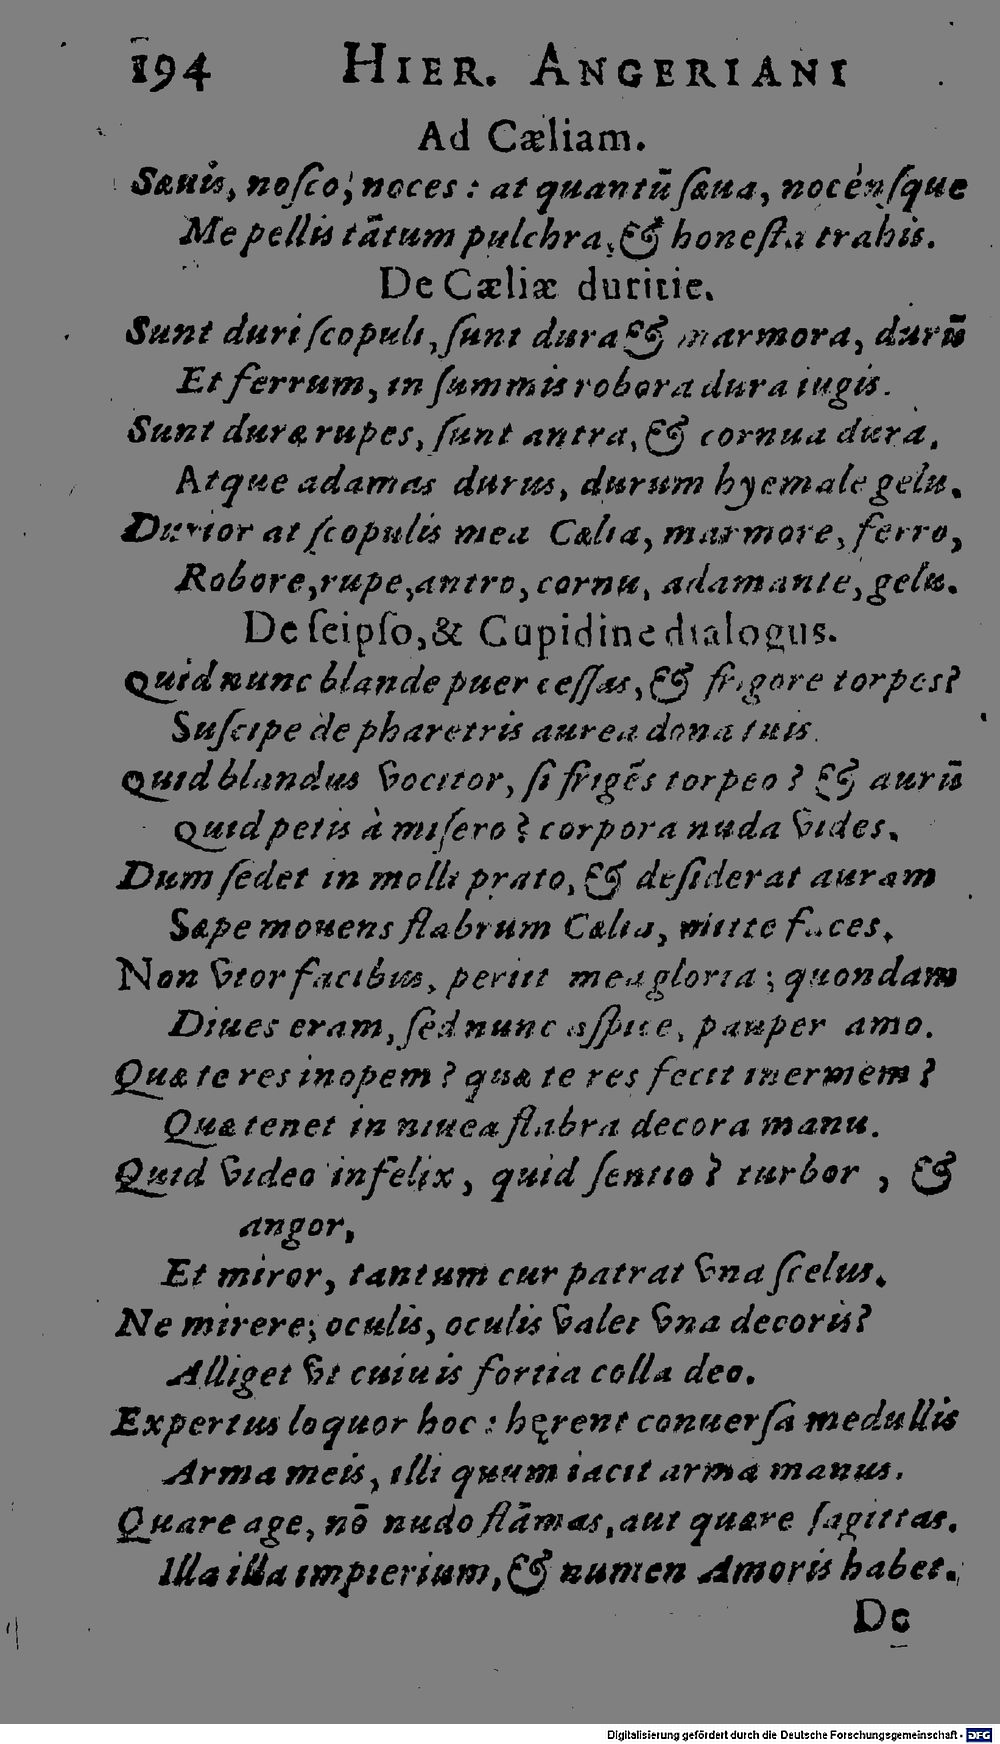 194 HIER. ANGERIANI
Ad Cæliam.
Sæuis, noſco, noces: at quantũ ſæua, nocénſque
Me pellis tãtum pulchra, & honeſta trahis.
De Cæliæ duritie.
Sunt duri ſcopuli, ſunt dura & marmora, durũ
Et ferrum, in ſummis robora dura iugis.
Sunt duræ rupes, ſunt antra, & cornua dura,
Atque adamas durus, durum hyemale gelu.
Durior at ſcopulis mea Cælia, marmore, ferro,
Robore, rupe, antro, cornu, adamante, gelu.
De ſeipſo, & Cupidine dialogus.
Quid nunc blande puer ceſſas, & frigore torpes?
Suſcipe de pharetris aurea dona tuis.
Quid blandus vocitor, ſi frigẽs torpeo? & aurũ
Quid petis à miſero? corpora nuda vides.
Dum ſedet in molli prato, & deſiderat auram
Sæpe mouens flabrum Cælia, mitte faces.
Non vtor facibus, periit mea gloria; quondam
Diues eram, ſed nunc aſpice, pauper amo.
Quæ te res inopem? quæ te res fecit inermem?
Quæ tenet in niuea flabra decora manu.
Quid video infelix, quid ſentio? turbor, &
angor,
Et miror, tantum cur patrat vna ſcelus.
Ne mirere; oculis, oculis valet vna decoris?
Alliget vt cuiuis fortia colla deo.
Expertus loquor hoc: hęrent conuerſa medullis
Arma meis, illi quum iacit arma manus.
Quare age, nõ nudo flãmas, aut quære ſagittas.
Illa illa impierium, & numen Amoris habet.
De
Digitalisierung gefördert durch die Deutsche Forschungsgemeinschaft - DFG